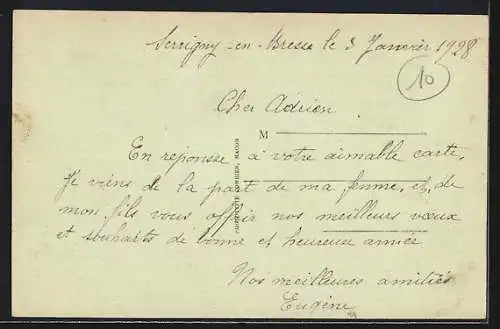 Serrigny-en-Bresse le 3 Janvier 1928
10
Cher Adrien
M
En reponse à votre aimable carte,
Je viens de la part de ma femme, et, de
mon fils vous offrir nos meilleurs vœux
et souhaits de bonne et heureuse année
Nos meilleures amitiés
Eugène